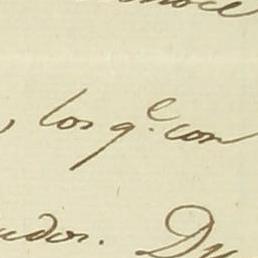 , los q.e con
ador. Du